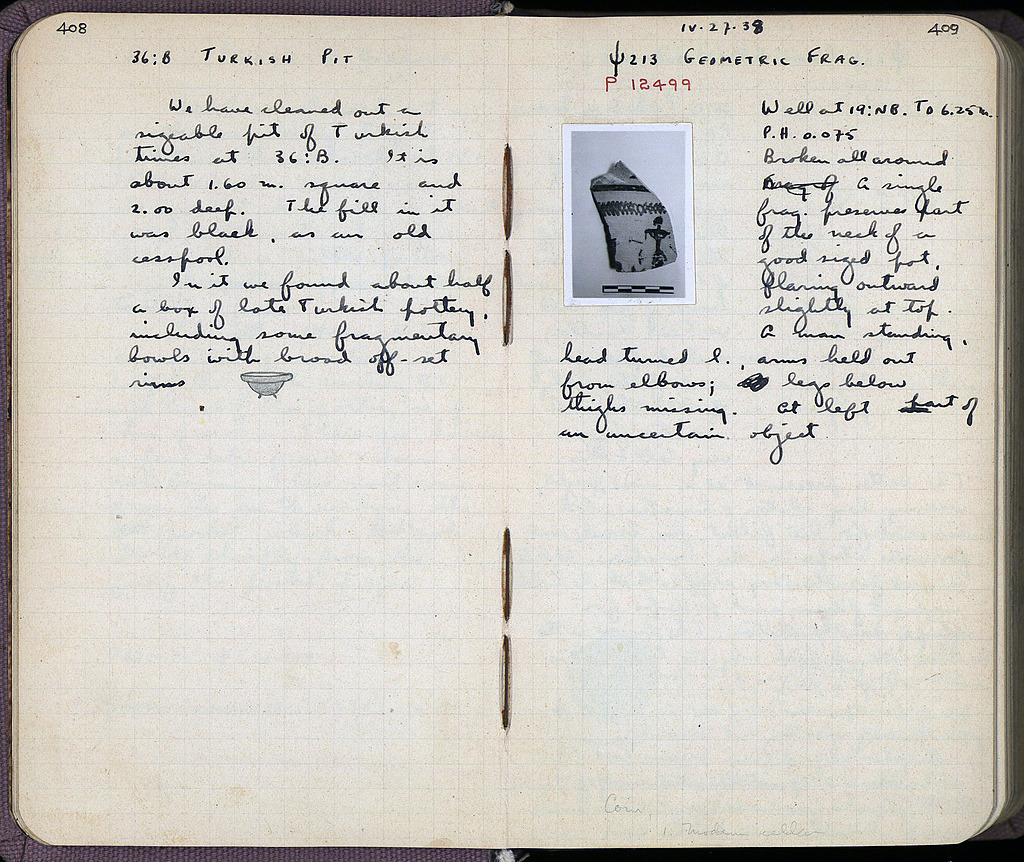 408
36:B TURKISH PIT
We have cleaned out a
sizeable pit of Turkish
times at 36:B. It is
about 1.60 m. square and
2.00 deep. The fill in it
was black, as an old
cesspool.
In it we found about half
a box of late Turkish pottery,
including some fragmentary
bowls with broad off-set
rims
IV.27.38
409
ψ213 GEOMETRIC FRAG.
P 12499
Well at 19:NB. To 6.25 m.
P.H. 0.075
Broken all around
Frag of A single
frag. preserves part
of the neck of a
good sized pot,
flaring outward
slightly at top.
A man standing,
head turned l., arms held out
from elbows; legs below
thighs missing. At left part of
an uncertain object.
Coin,
1. Modern